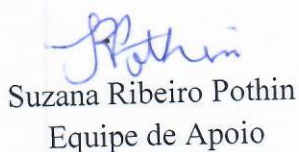 SPothin
Suzana Ribeiro Pothin
Equipe de Apoio